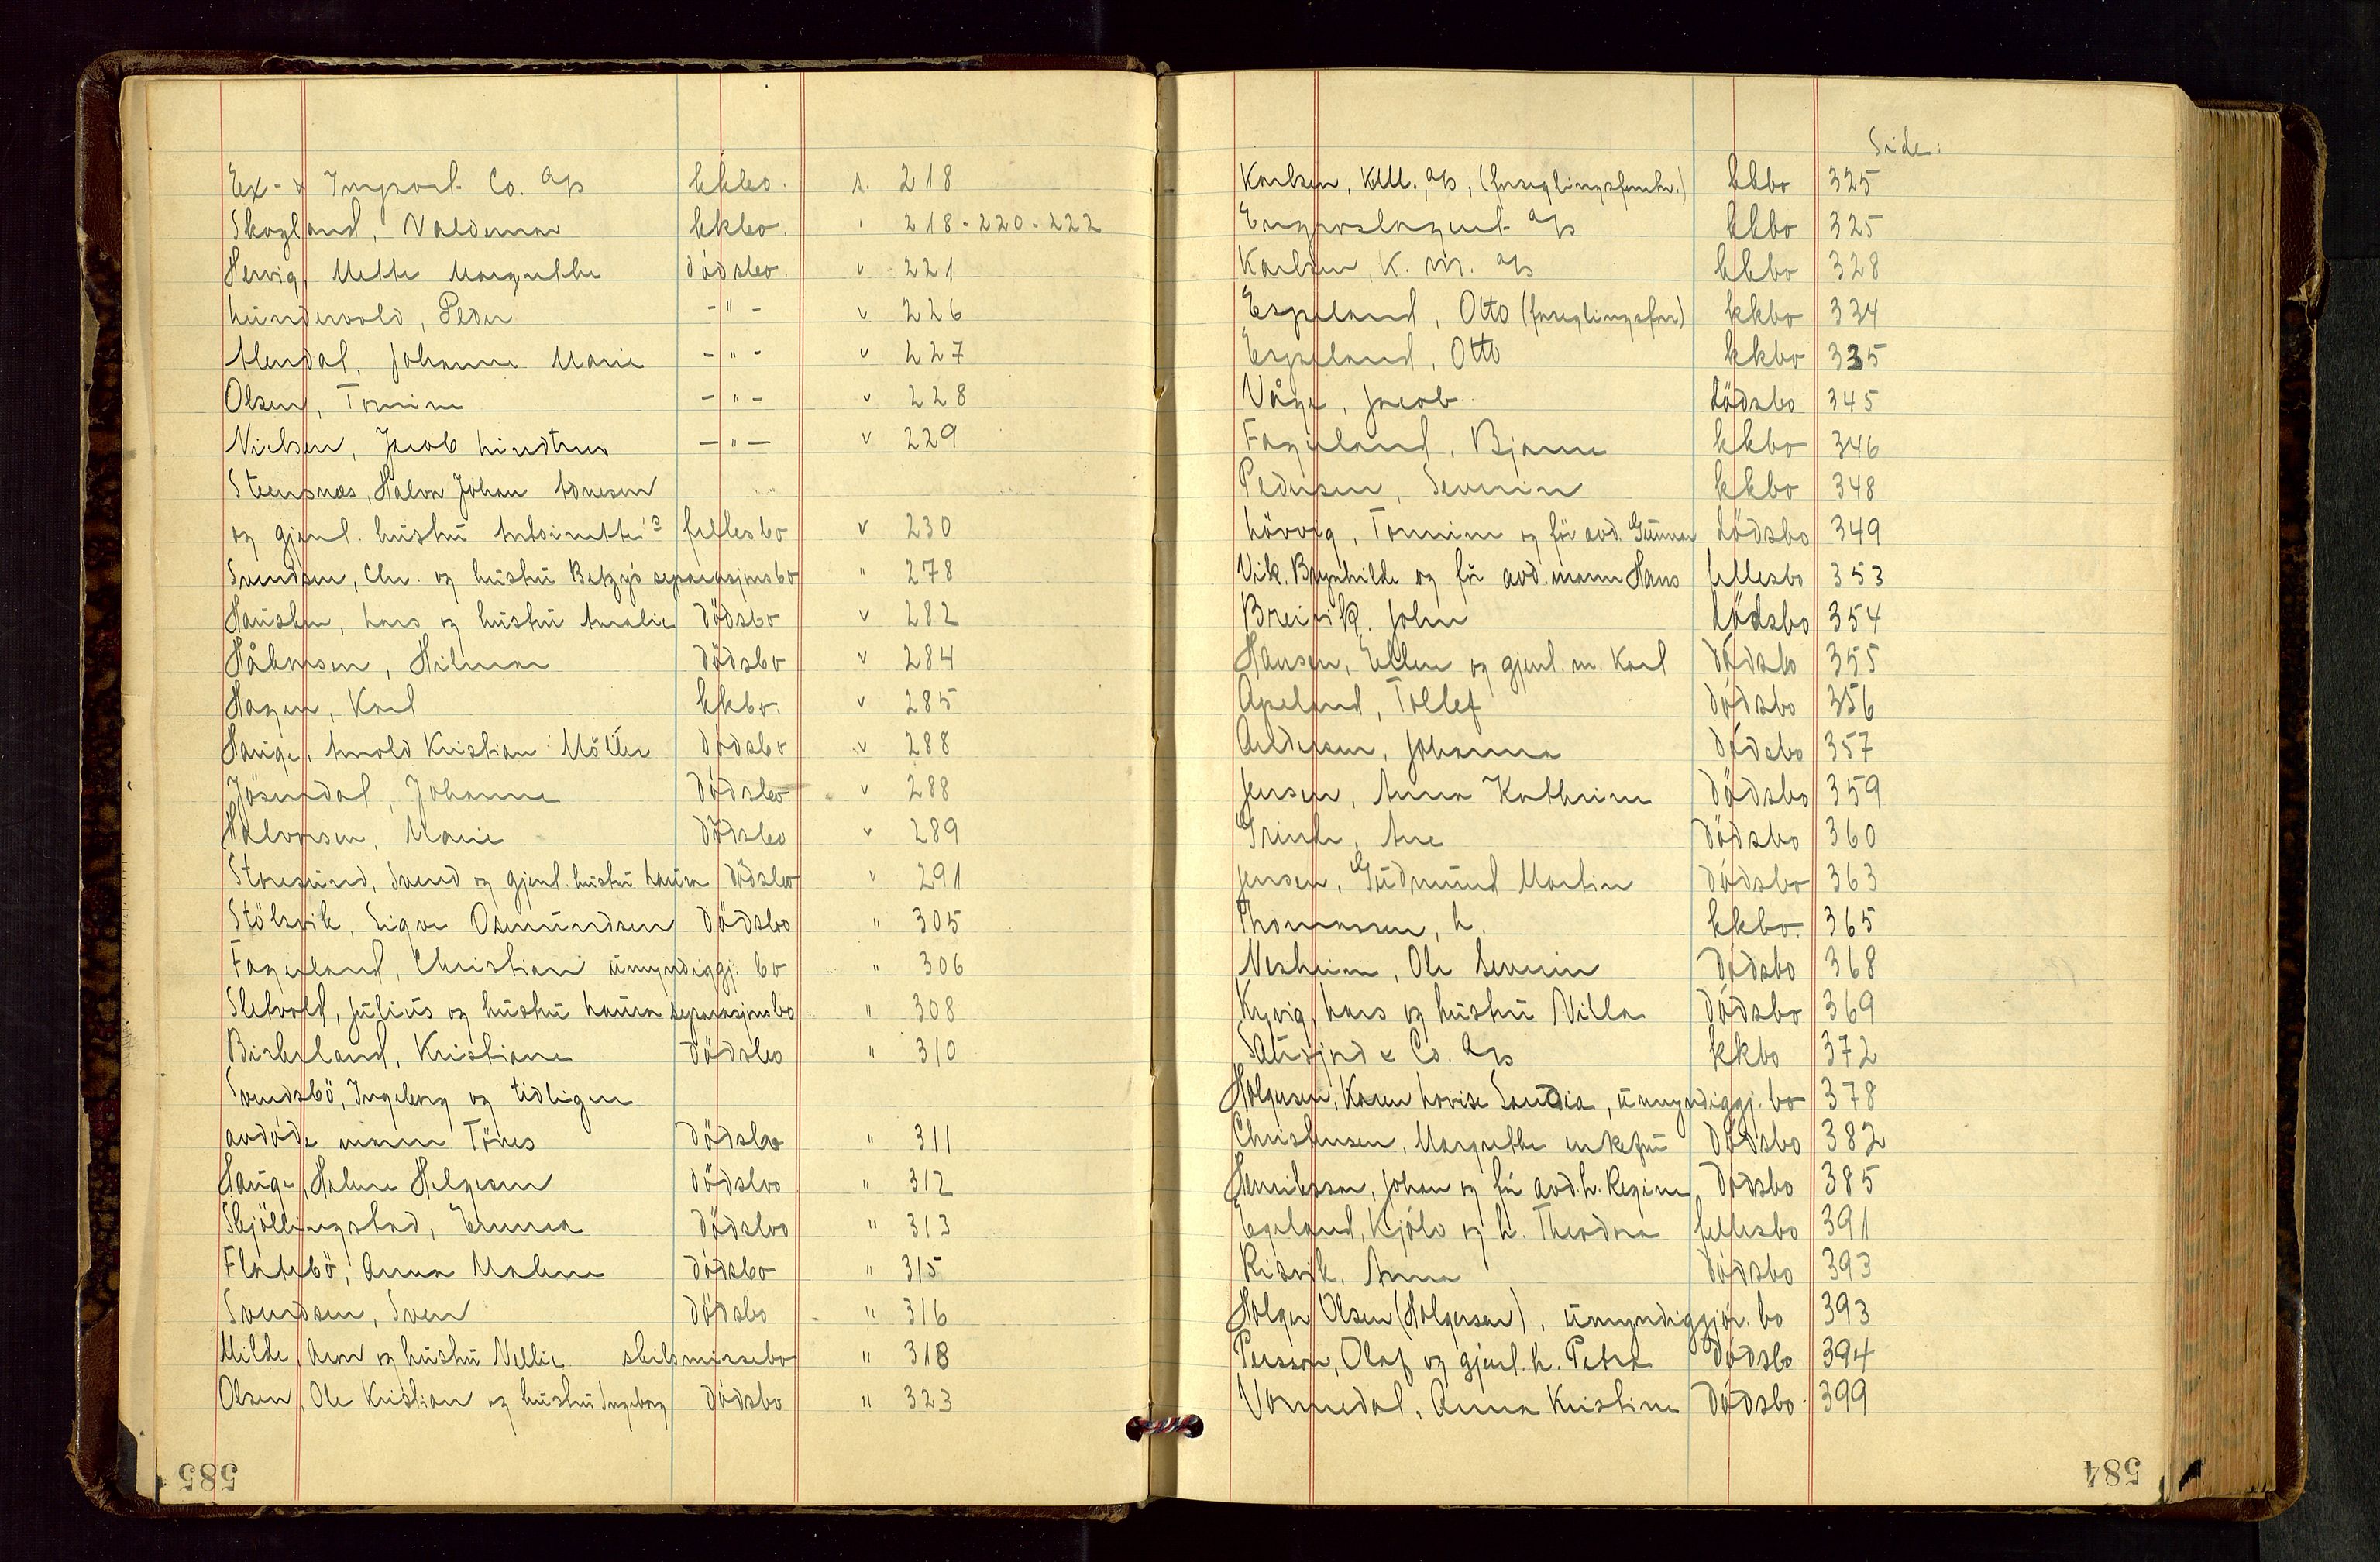 Ex- & Import Co. A/S kkbo. s. 218
Skogland, Valdemar kkbo. " 218-220-222
Hervig, Mette Margrethe dödsbo. v 221
Lundervold, Peder -"- v 226
Mendal, Johanne Marie -"- v 227
Olsen, Tomine -"- v 228
Nielsen, Jacob Lindtner -"- v 229
Steensnæs, Halvor Johan Adnesen
og gjenl. hustru Antoinette's fellesbo v 230
Svendsen, Chr. og hustru Betzy's separasjonsbo " 278
Hausken, Lars og hustru Amalie Dödsbo v 282
Håkonsen, Hilmar Dödsbo v 284
Hagen, Karl kkbo. v 285
Hauge, Arnold Kristian Möller Dödsbo v 288
Jösendal, Johanne Dödsbo v 288
Halvorsen, Marie Dödsbo v 289
Storesund, Svend og gjenl. hustru Laura Dödsbo " 291
Stölsvik, Sigve Osmundsen Dödsbo " 305
Fagerland, Christian umyndiggj. bo " 306
Sletvold, Julius og hustru Laura separasjonsbo " 308
Birkeland, Kristiane Dödsbo " 310
Svendsbö, Ingeborg og tidligere
avdöde mann Tönes Dödsbo " 311
Hauge, Helene Helgesen Dödsbo " 312
Skjöllingstad, Emma Dödsbo " 313
Flatebö, Anna Malene Dödsbo " 315
Svendsen, Sven Dödsbo " 316
Milde, Aron og hustru Nellie skilsmissebo " 318
Olsen, Ole Kristian og hustru Ingeborg Dödsbo " 323
585
Side:
Karlsen, K.M. A/S, (forseglingsforretn.) kkbo 325
Engroslageret A/S kkbo 325
Karlsen, K. M. A/S kkbo 328
Espeland, Otto (forseglingsforr) kkbo 334
Espeland, Otto kkbo 335
Våge, Jacob dödsbo 345
Fagerland, Bjarne kkbo 346
Pedersen, Severin kkbo 348
Lövvig, Tomine og för avd. Gunnar dödsbo 349
Vik, Brynhilde og för avd. mann Hans fellesbo 353
Breivik, John dödsbo 354
Hansen, Ellen og gjenl. m. Karl Dödsbo 355
Apeland, Tollef Dödsbo 356
Andersen, Johanna Dödsbo 357
Jensen, Anna Kathrine Dödsbo 359
Grinde, Ane Dödsbo 360
Jensen, Gudmund Martin Dödsbo 363
Thomassen, L. kkbo. 365
Nesheim, Ole Severin Dödsbo 368
Kyvig, Lars og hustru Villa Dödsbo 369
Saudjord & Co. A/S kkbo 372
Holgersen, Karen Lovise Saudia, umyndiggj. bo 378
Christensen, Margrethe enkefru Dödsbo 382
Henriksson, Johan og för avd. h. Regine Dödsbo 385
Egeland, Kjölv og h. Theodora fellesbo 391
Risvik, Anna Dödsbo 393
Holger Olsen (Holgersen), umyndiggjör. bo 393
Persson, Olaf og gjenl. h. Petra Dödsbo 394
Vormedal, Anna Kristine Dödsbo 399
584